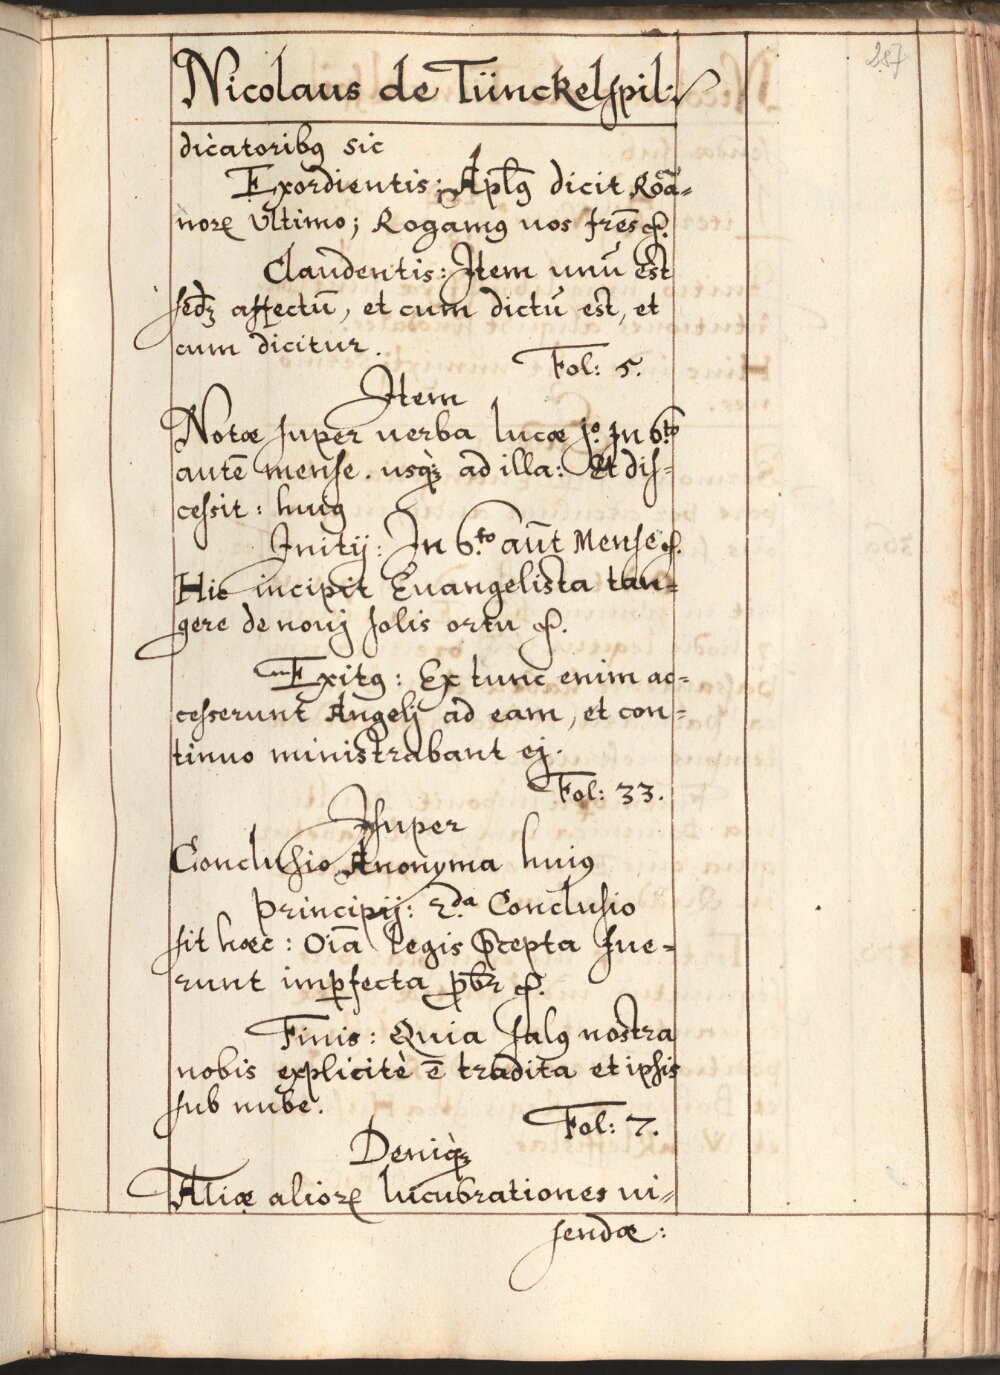 257
Nicolaus de Tünckelspil:
dicatoribꝯ sic
Exordientis: Apl̃ꝯ dicit Roã=
norꝝ ultimo; Rogamꝯ uos fr̃es &.
Claudentis: Item unũ est
sed̃ affectũ, et cum dictũ est, et
cum dicitur.
Fol: 5.
Item
Notæ super uerba lucæ j.º In 6.to
autẽ mense. usqꝫ ad illa: Et dis=
cessit: huiꝯ
Initij: In 6.to aũt Mense &.
Hic incipit Euangelista tan=
gere de nouj solis ortu &.
Exitꝯ: Ex tunc enim ac=
cesserunt Angelj ad eam, et con=
tinuo ministrabant ej.
Fol: 33.
Insuper
Conclusio Anonyma huiꝯ
principij: 2.da Conclusio
sit hæc: Oĩa legis p̃cepta fue=
runt imꝑfecta ꝓbr &.
Finis: Quia salꝯ nostra
nobis explicitè ẽ tradita et ipsis
sub nube.
Fol: 7.
Deniqꝫ
Aliæ aliorꝝ lucubrationes ui=
sendæ: